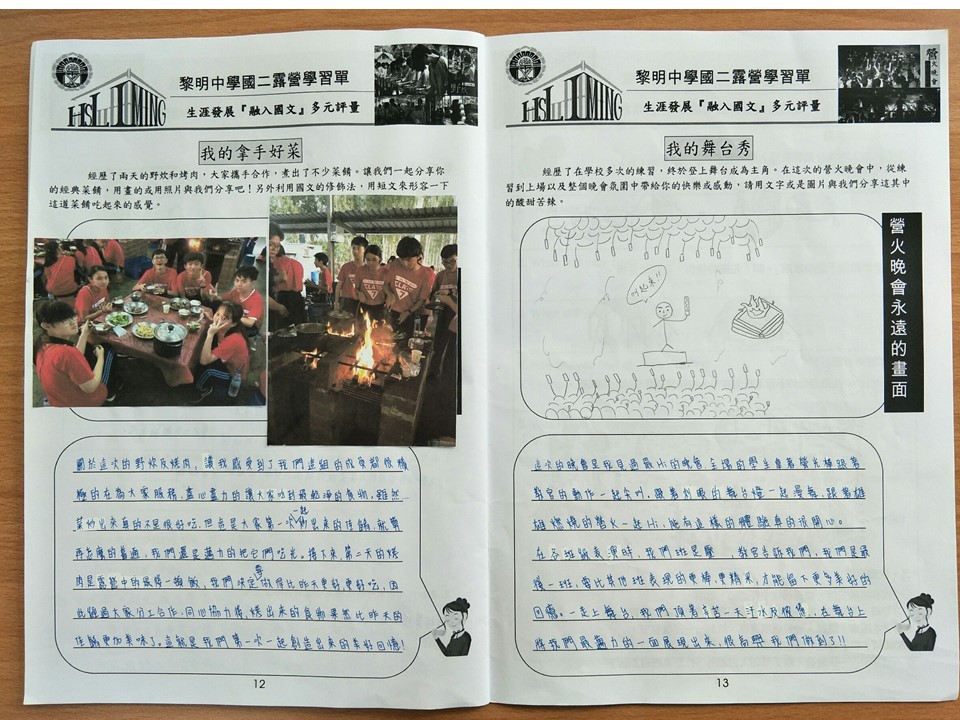 HSI LIMING
黎明中學國二露營學習單
生涯發展『融入國文』多元評量
我的拿手好菜
經歷了兩天的野炊和烤肉,大家攜手合作,煮出了不少菜餚。讓我們一起分享你
的經典菜餚,用畫的或用照片與我們分享吧!另外利用國文的修飾法,用短文來形容一下
這道菜餚吃起來的感覺。
關於這次的野炊及烤肉,讓我感受到了我們這組的成員都很積
極的在為大家服務,盡心盡力的讓大家吃到最乾淨的食物,雖然
菜炒出來真的不是很好吃,但也是大家第一次一起炒出來的佳餚,就算
再怎麼的普通,我們還是盡力的把它們吃光。接下來第二天的烤
肉是露營中的最後一頓飯,我們決定要做得比昨天更好更好吃,因
此經過大家分工合作,同心協力後,烤出來的食物果然比昨天的
佳餚更加美味了。這就是我們第一次一起創造出來的美好回憶!
12
營火晚會
黎明中學國二露營學習單
生涯發展『融入國文』多元評量
我的舞台秀
經歷了在學校多次的練習,終於登上舞台成為主角。在這次的營火晚會中,從練
習到上場以及整個晚會氛圍中帶給你的快樂或感動,請用文字或是圖片與我們分享這其中
的酸甜苦辣。
叫起來!!
營火晚會永遠的畫面
這次的晚會是我見過最Hi的晚會,全場的學生拿著螢光棒跟著
教官的動作一起尖叫,跟著炒眼的舞台燈一起漫舞,跟著雄
雄燃燒的營火一起Hi,能有這樣的體驗真的很開心。
在各班級表演時,我們班是壓 教官告訴我們,我們是最
後一班,會比其他班表現的更棒,更精采,才能留下更多美好的
回憶。一走上舞台,我們頂著辛苦一天汗水及疲憊,在舞台上
將我們最盡力的一面展現出來,很高興我們做到了!!
13